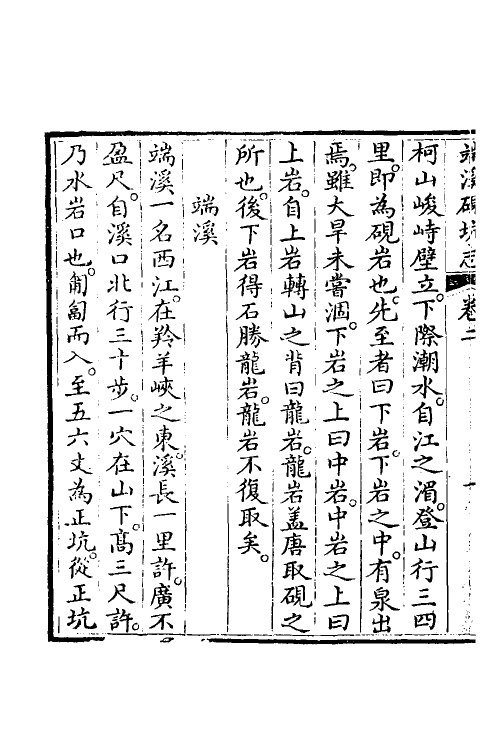 端溪硯坑志 卷二
柯山峻峙壁立。下際潮水。自江之湄。登山行三四
里。即為硯岩也。先至者曰下岩。下岩之中。有泉出
焉。雖大旱未嘗涸。下岩之上曰中岩。中岩之上曰
上岩。自上岩轉山之背曰龍岩。龍岩盖唐取硯之
所也。後下岩得石勝龍岩。龍岩不復取矣。
端溪
端溪一名西江。在羚羊峽之東。溪長一里許。廣不
盈尺。自溪口北行三十步。一穴在山下。髙三尺許。
乃水岩口也。匍匐而入。至五六丈為正坑。從正坑